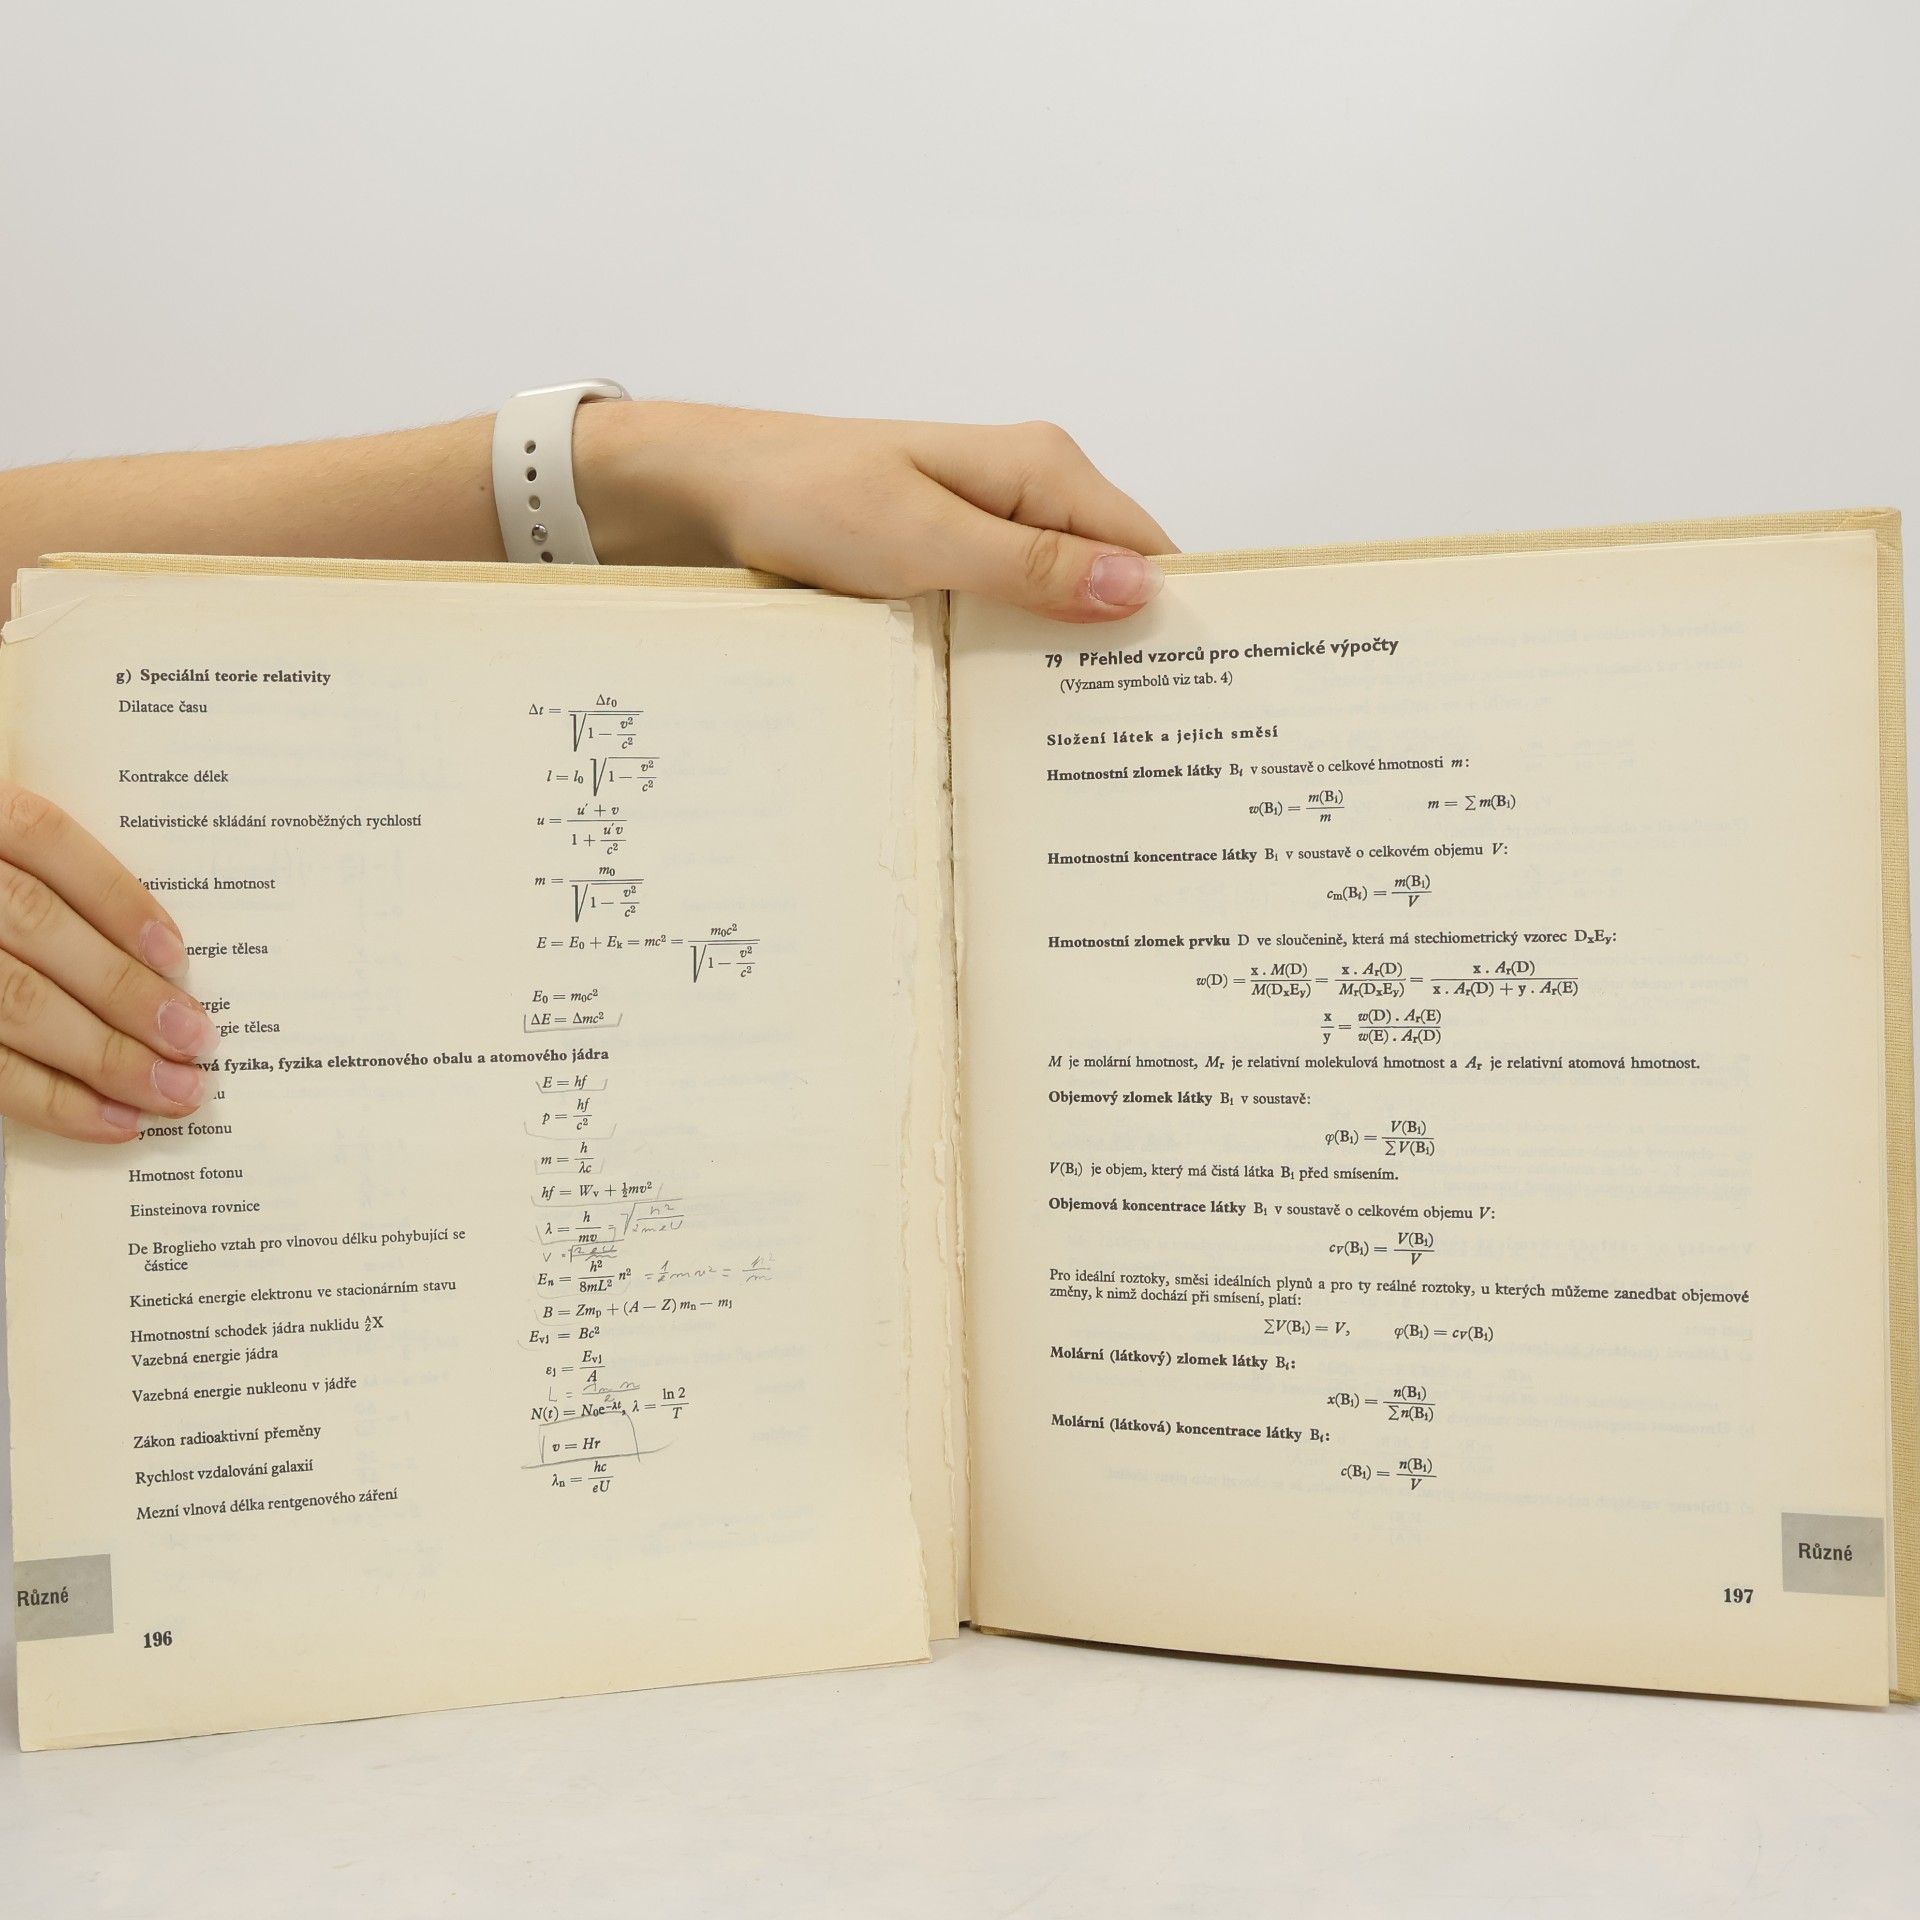 g) Speciální teorie relativity
Dilatace času Δt = Δt₀ / √(1 − v²/c²)
Kontrakce délek l = l₀ √(1 − v²/c²)
Relativistické skládání rovnoběžných rychlostí u = (u′ + v) / (1 + u′v/c²)
lativistická hmotnost m = m₀ / √(1 − v²/c²)
nergie tělesa E = E₀ + Eₖ = mc² = m₀c² / √(1 − v²/c²)
ergie E₀ = m₀c²
rgie tělesa ΔE = Δmc²
ová fyzika, fyzika elektronového obalu a atomového jádra
u E = hf
ybnost fotonu p = hf/c²
Hmotnost fotonu m = h/λc
Einsteinova rovnice hf = Wᵥ + ½mv²
De Broglieho vztah pro vlnovou délku pohybující se λ = h/mv = √(h²/2meU)
částice
Kinetická energie elektronu ve stacionárním stavu Eₙ = h²/8mL² n² = ½mv² =
Hmotnostní schodek jádra nuklidu ᴬ_ZX B = Zmₚ + (A − Z) mₙ − mⱼ
Vazebná energie jádra Eᵥⱼ = Bc²
Vazebná energie nukleonu v jádře εⱼ = Eᵥⱼ/A
Zákon radioaktivní přeměny N(t) = N₀e^−λt, λ = ln 2/T
Rychlost vzdalování galaxií v = Hr
Mezní vlnová délka rentgenového záření λₙ = hc/eU
Různé
196
79 Přehled vzorců pro chemické výpočty
(Význam symbolů viz tab. 4)
Složení látek a jejich směsí
Hmotnostní zlomek látky Bᵢ v soustavě o celkové hmotnosti m:
w(Bᵢ) = m(Bᵢ)/m m = ∑ m(Bᵢ)
Hmotnostní koncentrace látky Bᵢ v soustavě o celkovém objemu V:
cₘ(Bᵢ) = m(Bᵢ)/V
Hmotnostní zlomek prvku D ve sloučenině, která má stechiometrický vzorec DₓE_y:
w(D) = x . M(D) / M(DₓE_y) = x . Aᵣ(D) / Mᵣ(DₓE_y) = x . Aᵣ(D) / (x . Aᵣ(D) + y . Aᵣ(E))
x/y = w(D) . Aᵣ(E) / w(E) . Aᵣ(D)
M je molární hmotnost, Mᵣ je relativní molekulová hmotnost a Aᵣ je relativní atomová hmotnost.
Objemový zlomek látky Bᵢ v soustavě:
φ(Bᵢ) = V(Bᵢ) / ∑ V(Bᵢ)
V(Bᵢ) je objem, který má čistá látka Bᵢ před smísením.
Objemová koncentrace látky Bᵢ v soustavě o celkovém objemu V:
c_V(Bᵢ) = V(Bᵢ)/V
Pro ideální roztoky, směsi ideálních plynů a pro ty reálné roztoky, u kterých můžeme zanedbat objemové
změny, k nimž dochází při smísení, platí:
∑V(Bᵢ) = V, φ(Bᵢ) = c_V(Bᵢ)
Molární (látkový) zlomek látky Bᵢ:
x(Bᵢ) = n(Bᵢ) / ∑n(Bᵢ)
Molární (látková) koncentrace látky Bᵢ:
c(Bᵢ) = n(Bᵢ)/V
Různé
197